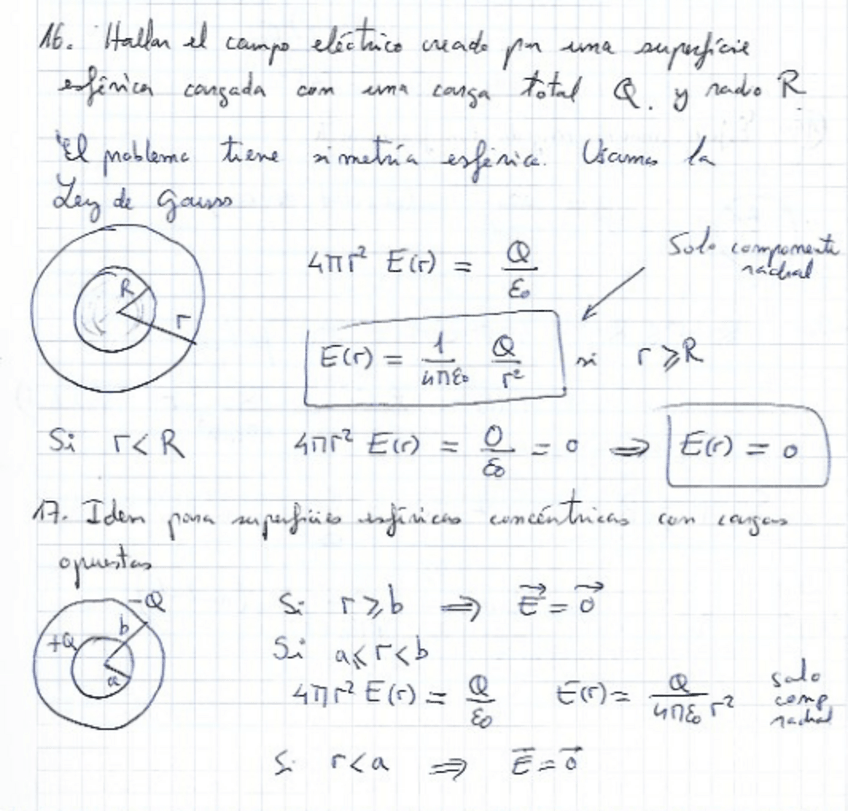 16. Hallar el campo eléctrico creado por una superficie
esférica cargada con una carga total Q. y radio R
El problema tiene simetría esférica. Usamos la
Ley de Gauss
R
r
4πr² E(r) = Q/ε₀
Solo componente
radial
E(r) = 1/4πε₀ Q/r² si r ⩾ R
Si r < R 4πr² E(r) = 0/ε₀ = 0 ⇒ E(r) = 0
17. Idem para superficies esféricas concéntricas con cargas
opuestas
-Q
+Q
b
a
Si r ⩾ b ⇒ E⃗ = 0⃗
Si a ⩽ r < b
4πr² E(r) = Q/ε₀ E(r) = Q/4πε₀ r² solo
comp
radial
Si r < a ⇒ E⃗ = 0⃗